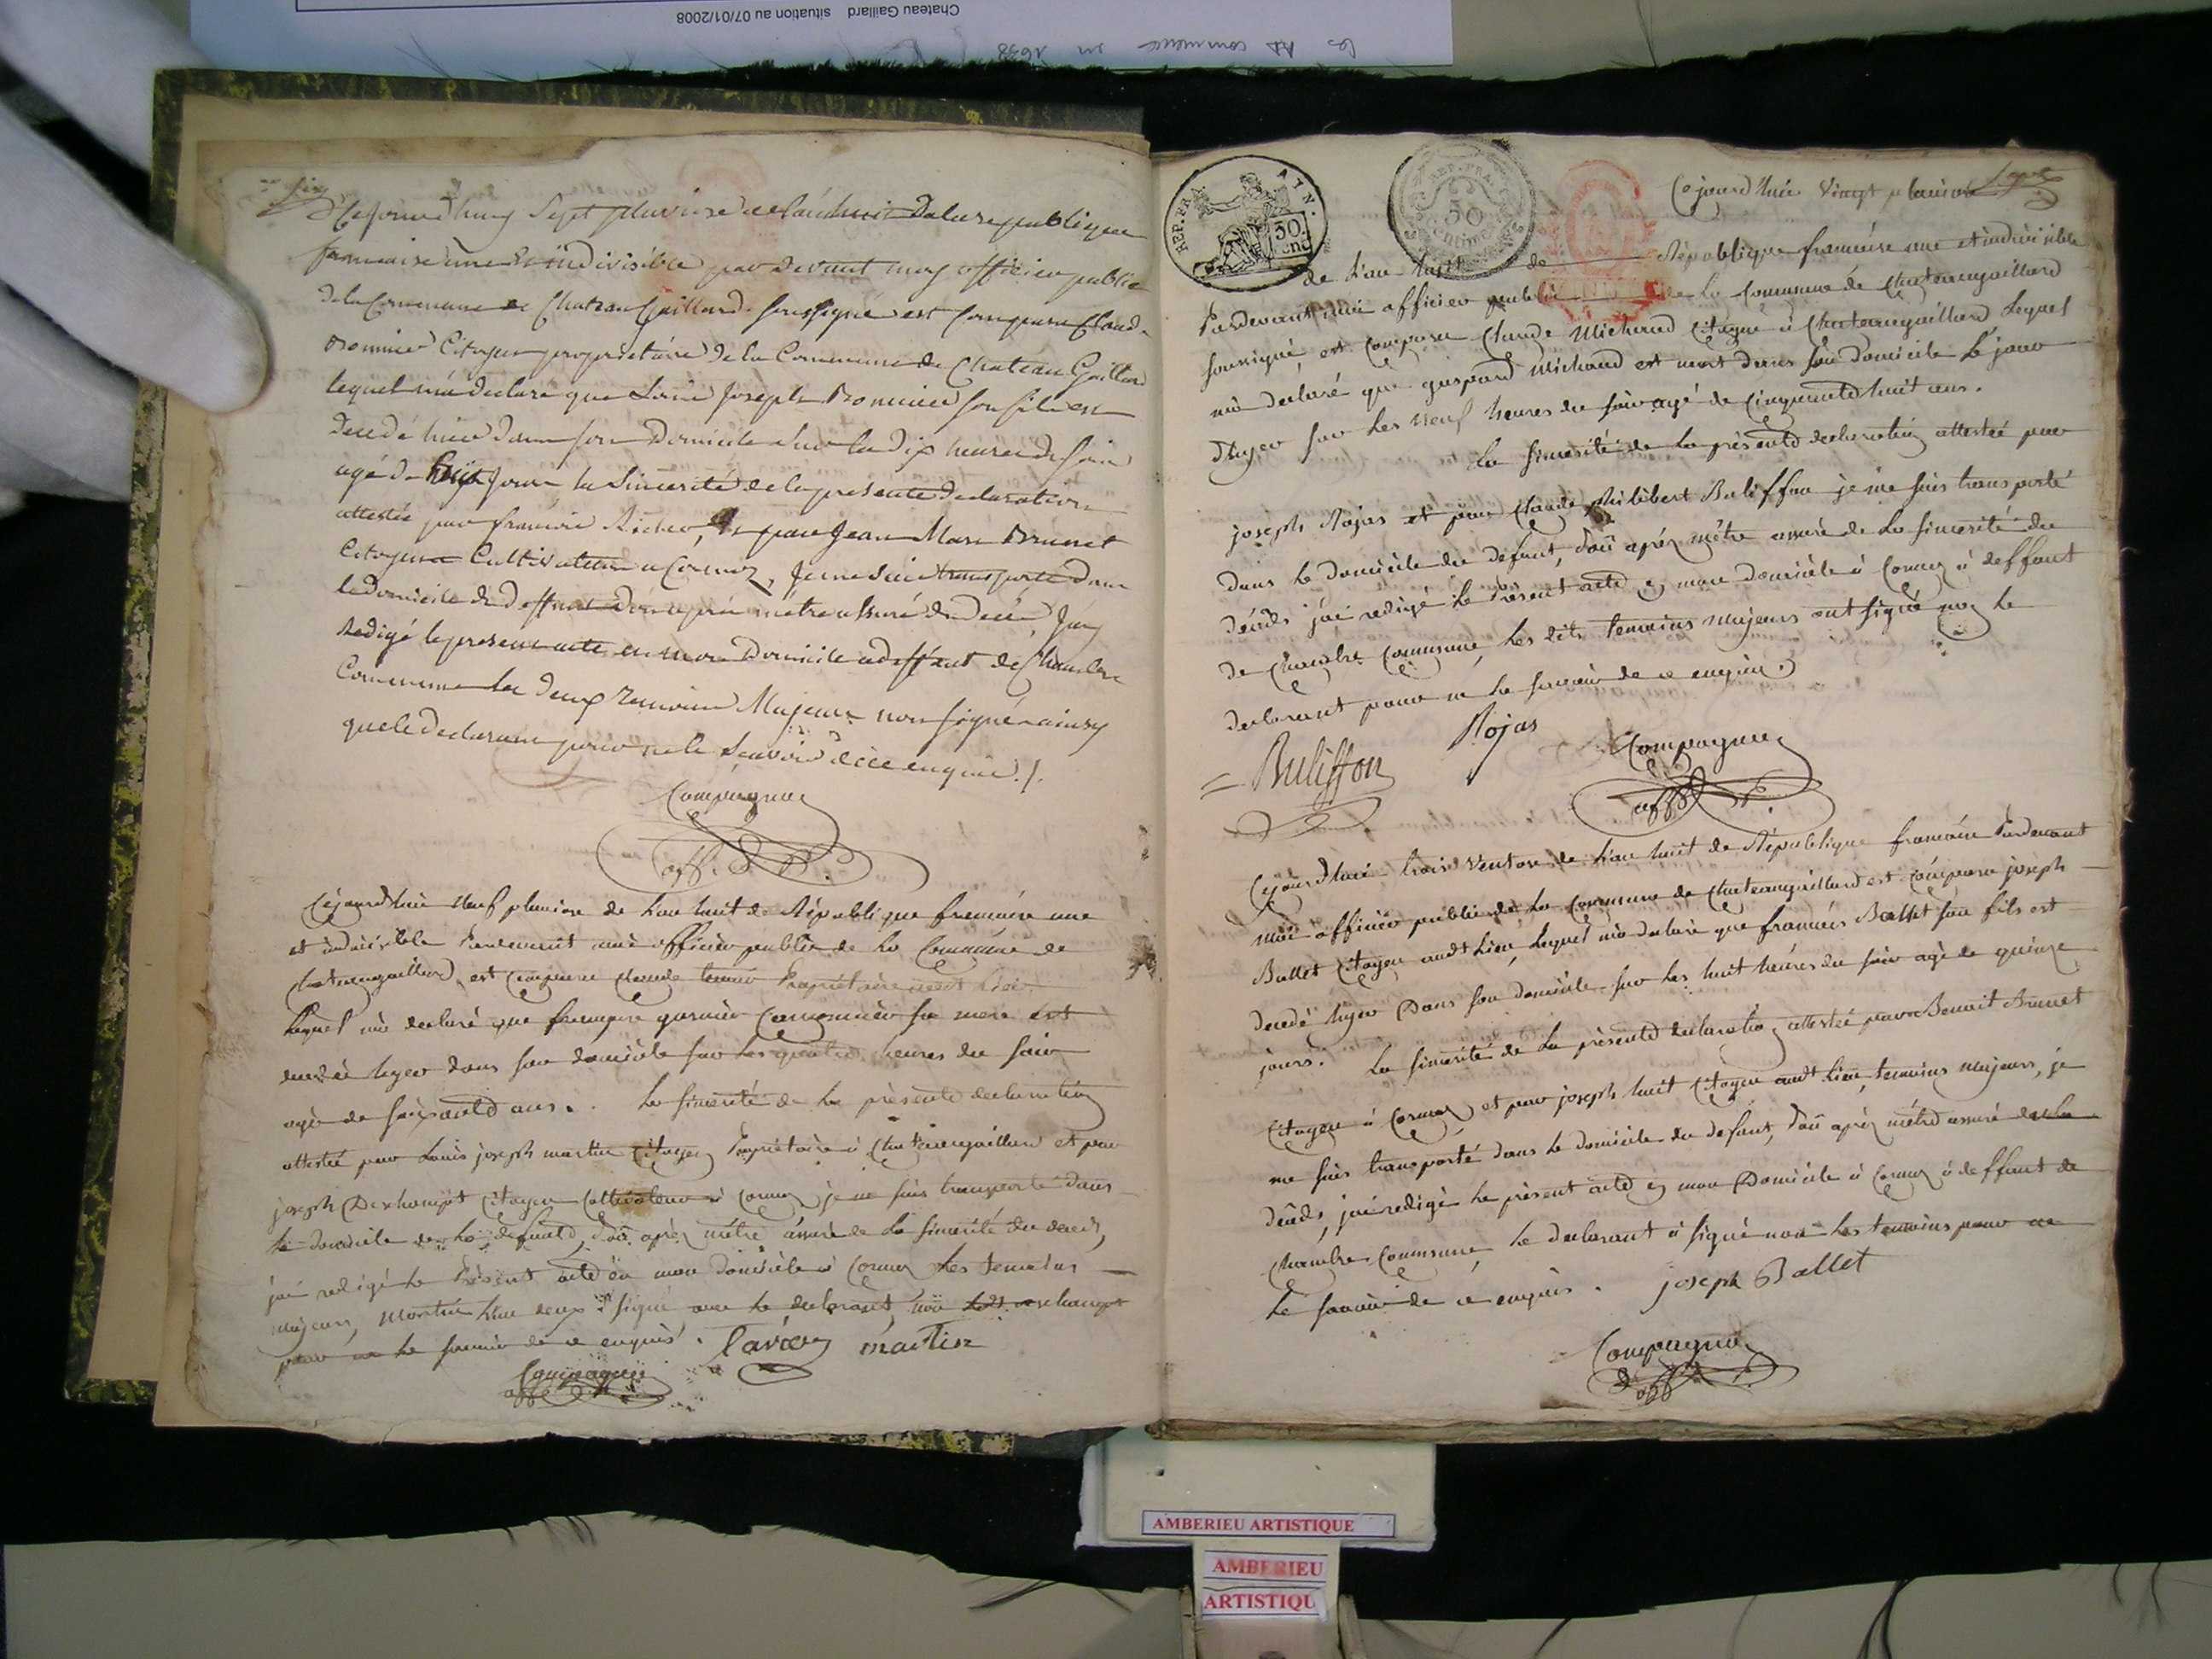 Chateau Gaillard situation au 07/01/2008
six
Ce jourdhuy Sept pluviose de l'an huit de la republique
francaise une Et indivisible par devant moy officier public
de la Commune de Chateau Gaillard soussigné est comparu Claude
Citoyen propriétaire de la Commune de Chateau Gaillard
lequel m'a declaré que Joseph son fils est
decedé hier dans son Domicile sur les dix heures du soir
agé de huit jours la Sincerité de la presente declaration
attestée par francois et par Jean Marc Brunet
Citoyens Cultivateurs a Cormoz, je me suis transporté dans
le domicile du deffunt d'ou apres m'etre assuré du decés, j'ay
Redigé le present acte en mon Domicile a deffaut de Chambre
Commune les deux temoins Majeurs non signé ainsy
que le declarant pour ne le Scavoir de ce enquis ./.
Compagnon
off. P.
Cejourdhui neuf pluviose de l'an huit de République francoise une
et indivisible Pardevant moi officier public de la Commune de
Chateaugaillard, est comparu Claude Propriétaire audt lieu
Lequel m'a declaré que sa mere est
decedé hyer dans son domicile sur les quatre heures du soir
agé de soixante ans. La sincerité de la présente declaration
attestée par Louis joseph martin Citoyen Propriétaire à Chateaugaillard et par
joseph Deschamps Citoyen Cultivateur à Cormoz je me suis transporté dans
le domicile de la defunte, d'où après m'être assuré de la sincerité du decès,
j'ai redigé le Présent acte en mon domicile à Cormoz Les temoins
majeurs, martin l'un deux à signé avec le declarant, non
pour ne le scavoir de ce enquis. martin
Compagnon
off. P.
REP. FRA. AIN.
50 cnt
REP. FRA.
50
centimes
Cejourd'huie Vingt pluviose Sept
de l'an huit de République francoise une et indivisible
Pardevant moi officier public de la Commune de Chateaugaillard
soussigné, est comparu Claude Michaud Citoyen à Chateaugaillard Lequel
m'a declaré que gaspard Michaud est mort dans son domicile le jour
d'hyer sur les neuf heures du soir agé de cinquante huit ans.
La sincerité de la présente declaration attestée par
joseph Rojas et par Claude Philibert Buliffon je me suis transporté
dans le domicile du defunt, d'où après m'être assuré de la sincerité du
decès j'ai redigé le Présent acte en mon domicile à Cormoz à deffaut
de Chambre Commune, Les dits temoins majeurs ont signé non le
declarant pour ne le scavoir de ce enquis.
Rojas
Buliffon
Compagnon
off. P.
Cejourdhui trois Ventose de l'an huit de République francoise Pardevant
moi officier public de la Commune de Chateaugaillard est comparu joseph
Ballet Citoyen audt Lieu, Lequel m'a declaré que francois Ballet son fils est
decedé hyer Dans son domicile sur les huit heures du soir agé de quinze
jours. La sincerité de la présente declaration attestée par Benoit Brunet
Citoyen à Cormoz, et par joseph huit Citoyen audt Lieu, temoins majeurs, je
me suis transporté dans le domicile du defunt, d'où après m'être assuré de la
decès, j'ai redigé le présent acte en mon Domicile à Cormoz à deffaut de
Chambre Commune, le declarant à signé non les temoins pour ne
le scavoir de ce enquis. joseph Ballet
Compagnon
off. P.
AMBERIEU ARTISTIQUE
AMBERIEU
ARTISTIQU